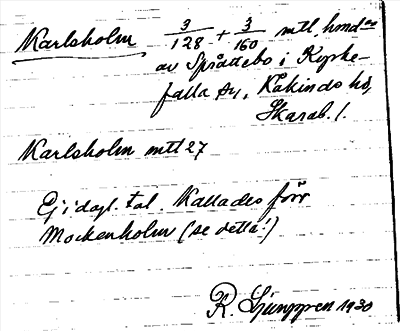 Karlsholm 3/128 + 3/160 mtl, hmd=
av Språttebo i Kyrke-
falla sn, Kåkinds hd,
Skarab. l.
Karlsholm mtl 27
Ej i dagl. tal. Kallades förr
Mockenholm (se detta!)
R. Ljunggren 1930